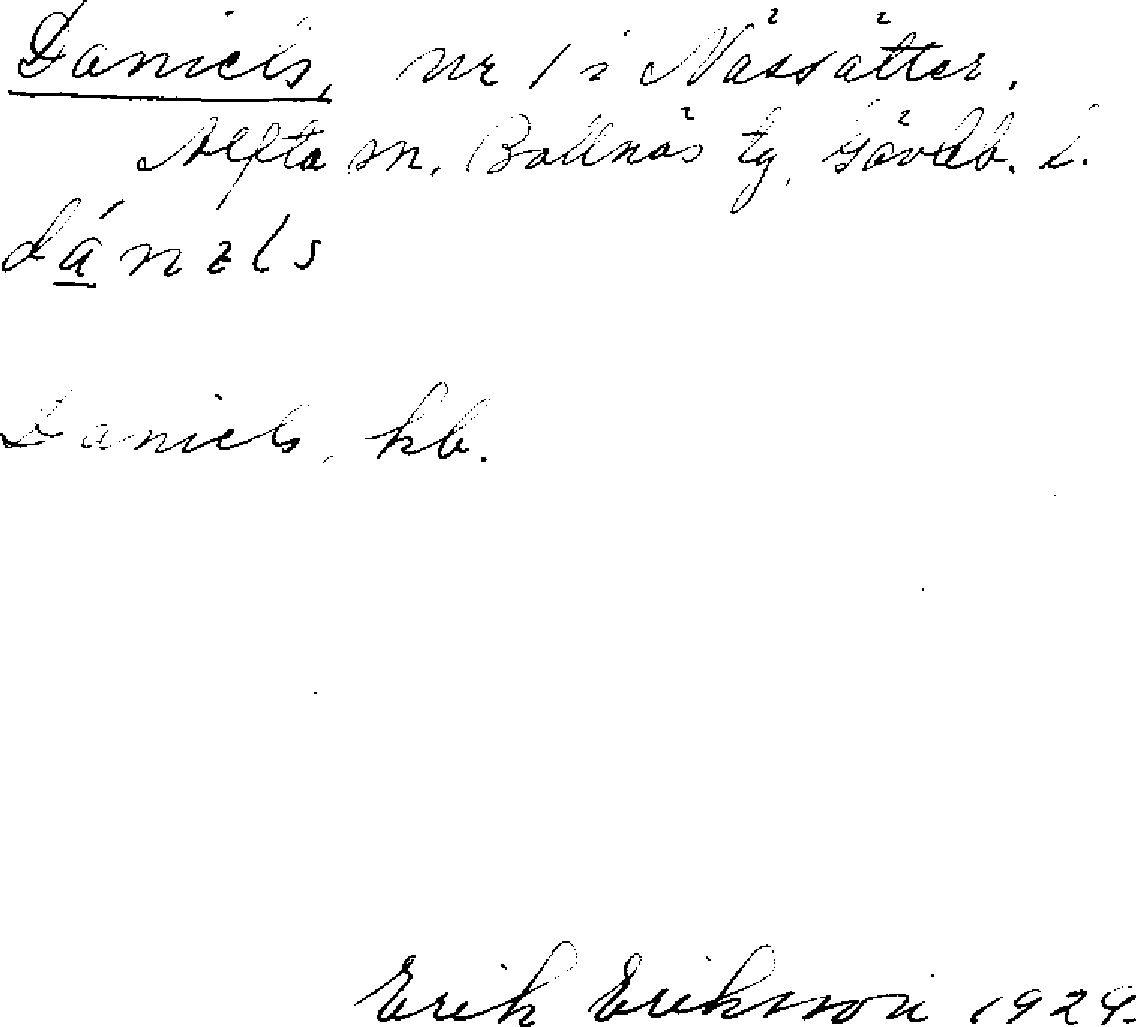 Daniels, nr 1 i Nässätter.
Alfta sn. Bollnäs tg. Gävleb. l.
dánəls
Daniels, kb.
Erik Eriksson 1929.